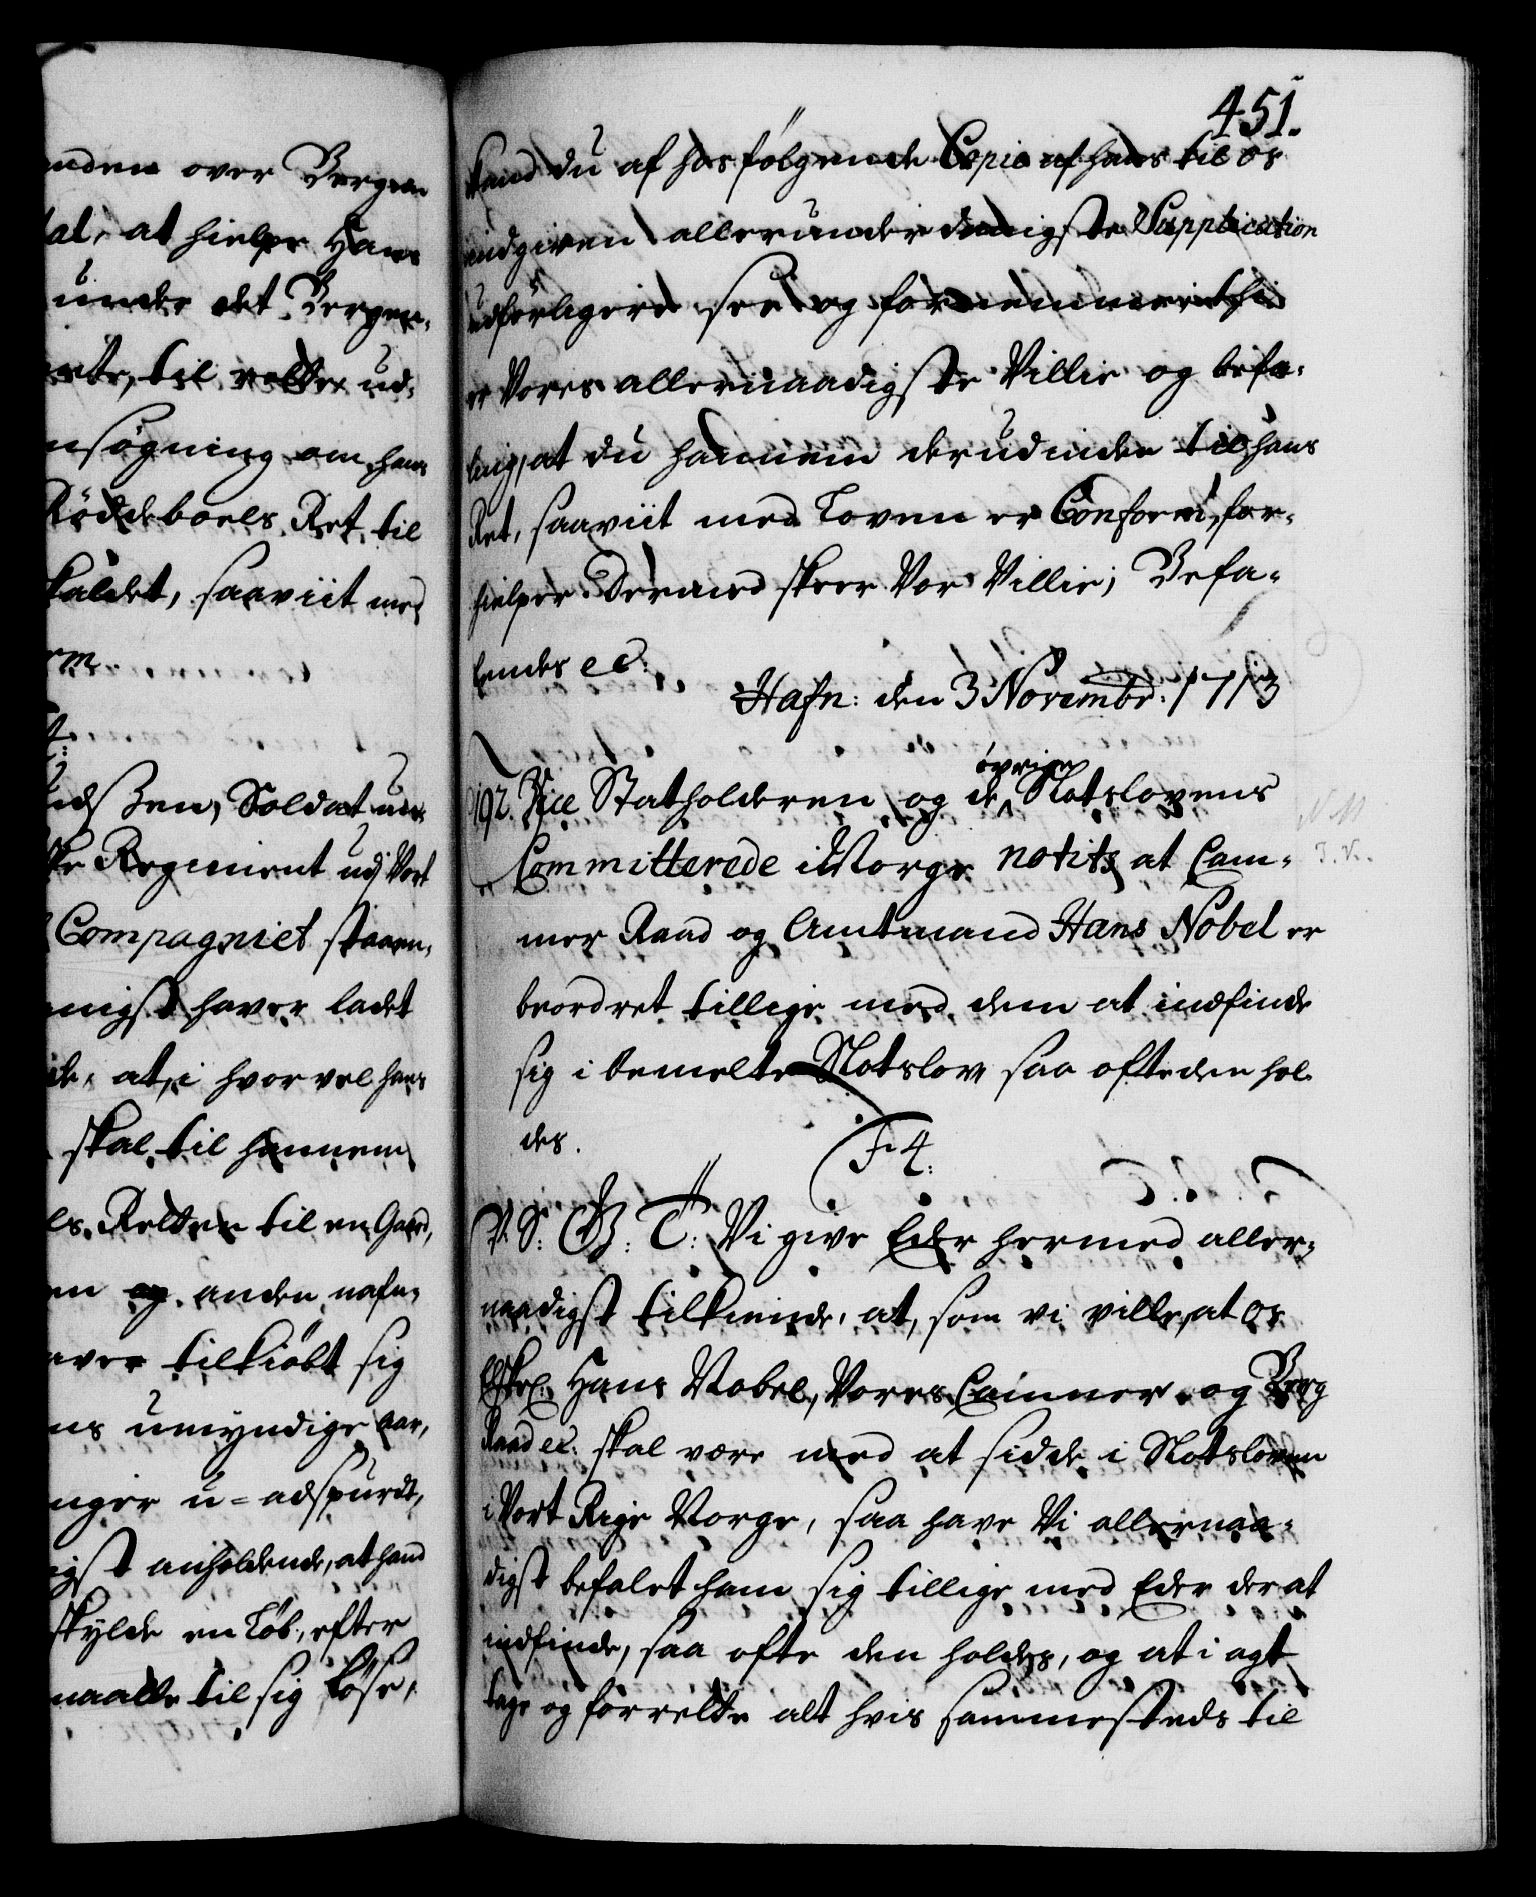 451.
nden over Bergen
tal, at hielpe Hans
under det Bergen,
ente, til rette ud,
nsögning om hans
Röddeboels Ret til
kaldet, saaviit med
rm.
udssen, Soldat un,
ske Regiment udj Vort
Compagniet staaen,
nigst haver ladet
de, at, i hvor vel hans
skal til hannem
ls Retten til en Gaard,
en og anden nafn,
aver tilkiöbt sig
ns umyndige aar,
nger u-adspurdt,
igst anholdende, at hand
skylde en Löb, efter
maatte til sig löse,
kand du af hosfölgende Copie af hans til os
indgiven allerunderdanigste Supplication
udförligere see og fornemme; thi
er Vores allernaadigste Villie og befa-
ling, at du hannem derudinden til hans
Ret, saaviit med Loven er Conform, for-
hielper. Dermed skeer Vor Villie; Befa-
lendes etc:
Hafn: den 3 Novembr: 1713
192. Vice Statholderen og de övrige Slotslovens
Committerede i Norge notits at Cam-
mer Raad og Amtmand Hans Nobel er
beordret tillige med dem at indfinde
sig i bemelte Slotslov saa ofte den hol-
des.
F 4.
V. S: G: T: Vi give Eder hermed aller-
naadigst tilkiende, at, som vi ville, at os
Elskel: Hans Nobel, Vores Cammer og Berg
Raad etc: skal være med at sidde i Slotsloven
i Vort Rige Norge, saa have Vi allernaa-
digst befalet ham sig tillige med Eder der at
indfinde, saa ofte den holdes, og at i agt
tage og forrette alt hvis sammesteds til